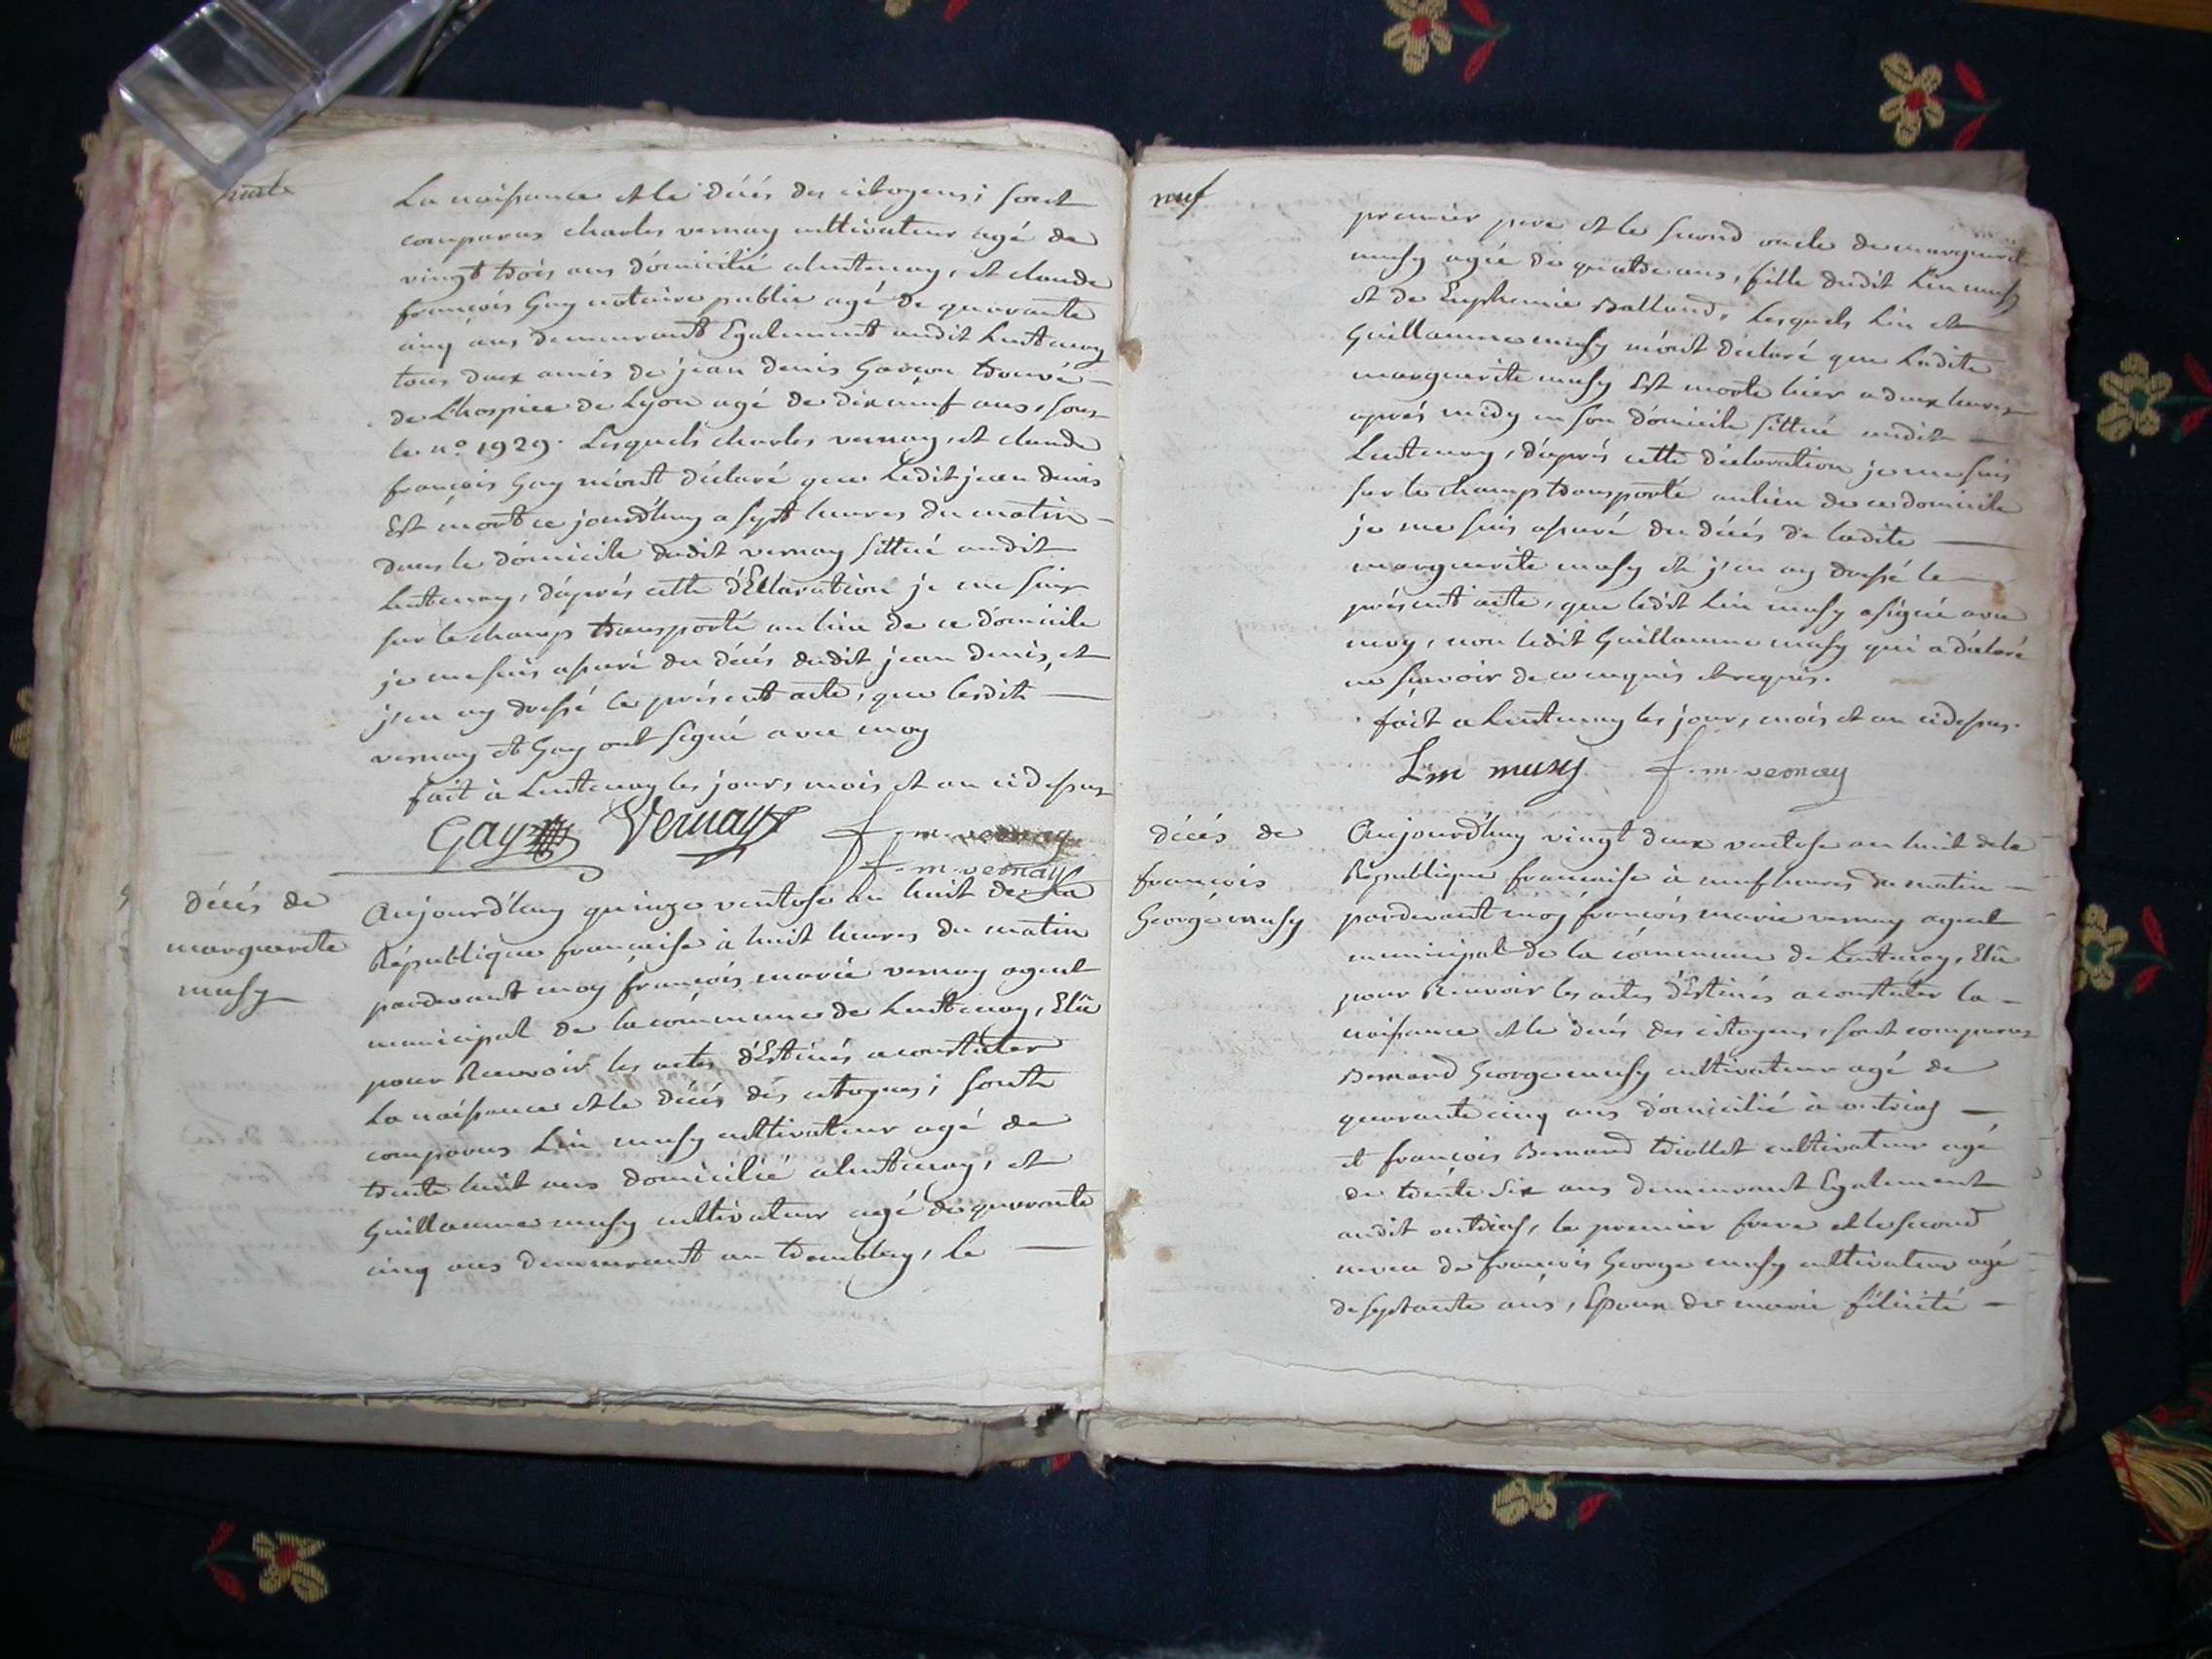 huit
La naissance et le décés des citoyens ; sont
comparus charles vernay cultivateur agé de
vingt trois ans domicilié a lentenay, et claude
françois Gay notaire public agé de quarante
cinq ans demeurant Egalement audit Lentenay
tous deux amis de jean denis Garçon trouvé
de L'hospice de Lyon agé de dix neuf ans, sous
le n° 1929. Lesquels charles vernay, et claude
françois Gay m'ont déclaré que Ledit jean denis
Est mort ce jourd'huy a sept heures du matin
dans le domicile dudit vernay sittué audit
Lentenay, d'aprés cette déClaration je me suis
sur le champ transporté au lieu de ce domicile
je me suis assuré du décés dudit jean denis, et
j'en ay dressé le présent acte, que lesdits
vernay et Gay ont signé avec moy
fait à Lentenay les jours, mois et an cidessus
Gay Vernay f. m. vernay
f. m. vernay
décés de
marguerite
musy
Aujourd'huy quinze ventose an huit de La
République française à huit heures du matin
pardevant moy françois marie vernay agent
municipal de la commune de Lentenay, Elû
pour Recevoir les actes d'Estinés a constater
La naissance et le décés dés citoyens ; sont
comparus Lin musy cultivateur agé de
trente huit ans domicilié a lentenay, et
Guillaume musy cultivateur agé de quarante
cinq ans demeurant au tremblay, le
neuf
premier pere et le second oncle de marguerite
musy agée de quatre ans, fille dudit Lin musy
et de Euphemie Balland, Lesquels Lin et
Guillaume musy m'ont déclaré que Ladite
marguerite musy Est morte hier a deux heures
aprés midy en son domicile sittué audit
Lentenay, d'aprés cette déclaration je me suis
sur le champ transporté au lieu de ce domicile
je me suis assuré du décés de ladite
marguerite musy et j'en ay dressé le
présent acte, que ledit Lin musy a signé avec
moy, non ledit Guillaume musy qui a déclaré
ne sçavoir de ce enquis et requis.
fait a Lentenay les jours, mois et an cidessus.
Lin musy f. m. vernay
décés de
françois
George musy
Aujourd'huy vingt deux ventose an huit de la
République francaise à neuf heures du matin
pardevant moy françois marie vernay agent
municipal de la commune de Lentenay, Elû
pour Recevoir les actes d'Estinés a constater la
naissance et le décés des citoyens, sont comparus
Bernard George musy cultivateur agé de
quarante cinq ans domicilié à outriaz
et françois Bernard triollet cultivateur agé
de trente six ans demeurant Egalement
audit outriaz, le premier frere et le second
neveu de françois George musy cultivateur agé
de septante ans, Epoux de marie félicité